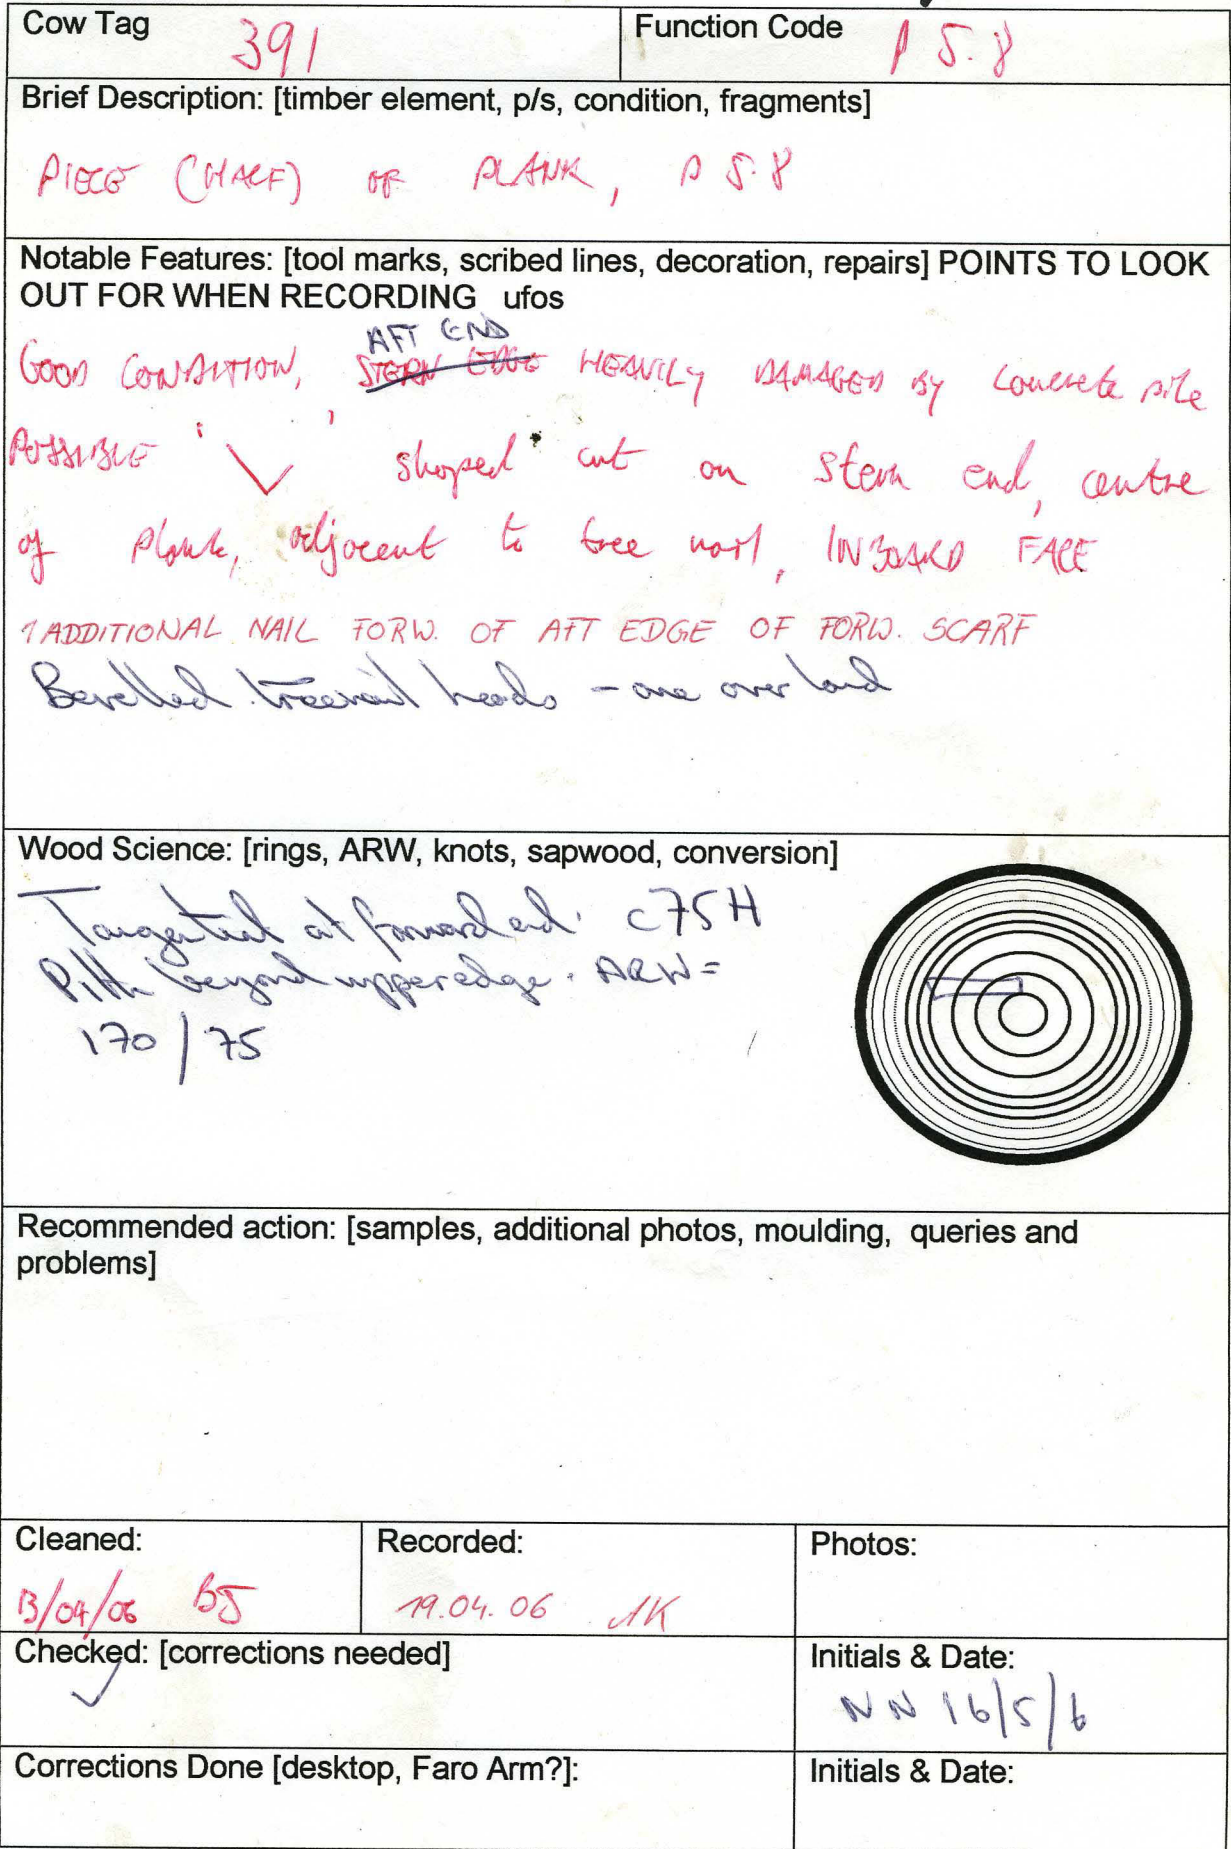 Cow Tag 391
Function Code P 5.8
Brief Description: [timber element, p/s, condition, fragments]
PIECE (HALF) OF PLANK, P 5.8
Notable Features: [tool marks, scribed lines, decoration, repairs] POINTS TO LOOK
OUT FOR WHEN RECORDING ufos
AFT END
GOOD CONDITION, STERN EDGE HEAVILY DAMAGED BY concrete pile
POSSIBLE ' V ' shaped cut on stern end, centre
of plank, adjacent to tree nail, INBOARD FACE
1 ADDITIONAL NAIL FORW. OF AFT EDGE OF FORW. SCARF
Bevelled treenail heads - one over land
Wood Science: [rings, ARW, knots, sapwood, conversion]
Tangential at forward end. c75H
Pith beyond upper edge. ARW =
170 / 75
Recommended action: [samples, additional photos, moulding, queries and
problems]
Cleaned:
13/04/06 BJ
Recorded:
19.04.06 AK
Photos:
Checked: [corrections needed]
✓
Initials & Date:
NN 16/5/6
Corrections Done [desktop, Faro Arm?]:
Initials & Date: